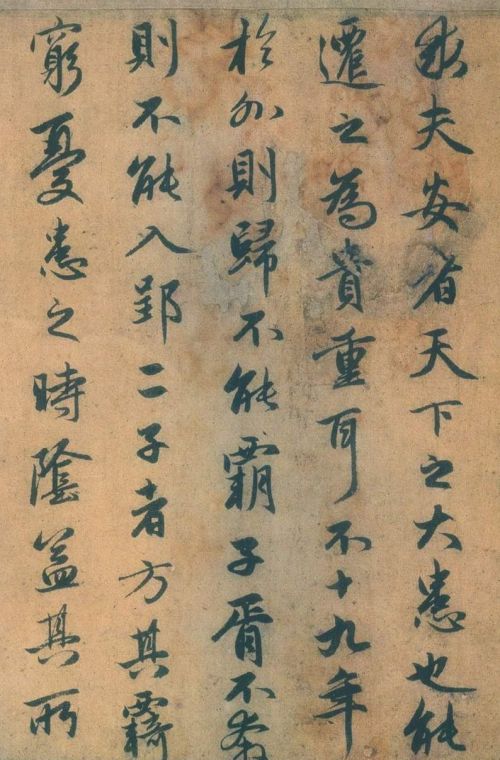 夫安者天下之大患也能
遷之為貴重耳不十九年
於外則歸不能霸子胥不奔
則不能入郢二子者方其覉
窮憂患之時陰益其所